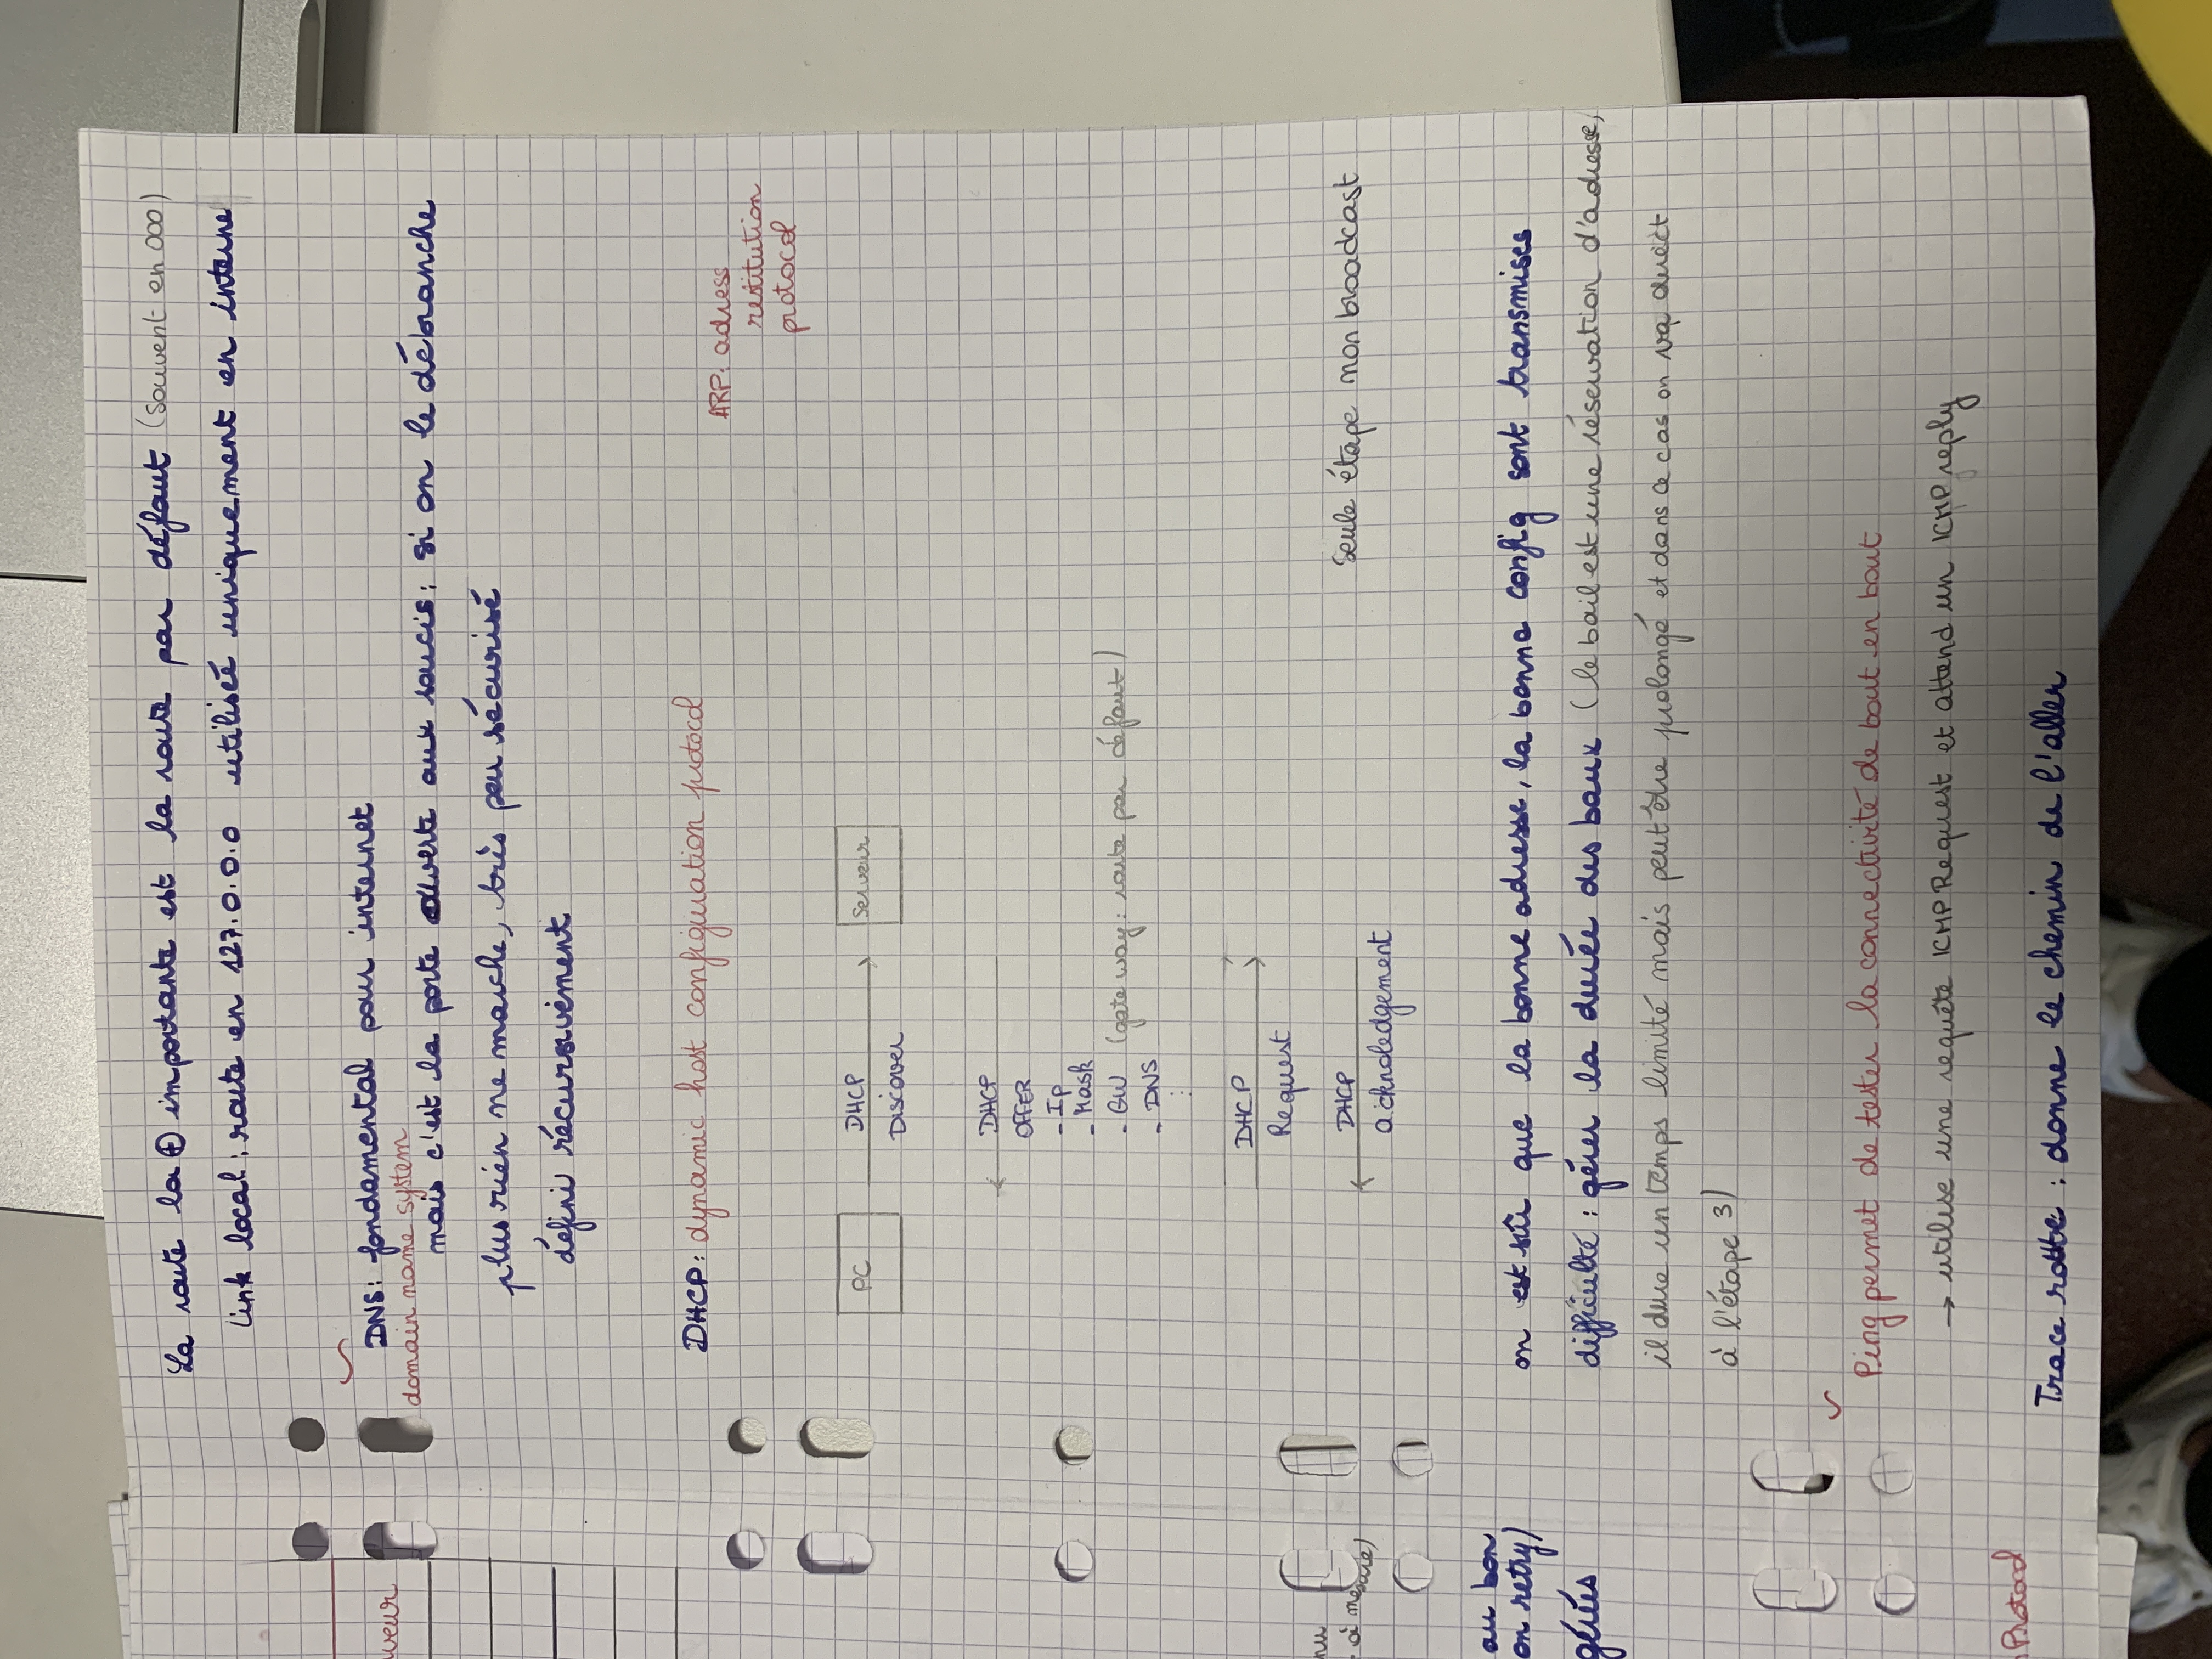 La route la ⊕ importante est la route par défaut (souvent en 000)
Link local : route en 127.0.0.0 utilisée uniquement en interne
DNS: fondamental pour internet
domain name system
mais c'est la porte ouverte aux soucis : si on le débranche
plus rien ne marche, très peu sécurisé
défini récursivement
DHCP: dynamic host configuration protocol
ARP: adress
restitution
protocol
PC
DHCP
Discover
Serveur
DHCP
OFFER
- Ip
- Mask
- GW (gate way : route par défaut)
- DNS
⋮
DHCP
Request
DHCP
acknoledgement
Seule étape non broadcast
on est sûr que la bonne adresse, la bonne config sont transmises
difficulté : gérer la durée des baux (le bail est une réservation d'adresse,
il dure un temps limité mais peut être prolongé et dans ce cas on va direct
à l'étape 3)
Ping permet de tester la connectivité de bout en bout
→ utilise une requête ICMP Request et attend un ICMP reply
Trace route : donne le chemin de l'aller
veur
nu
à mesure)
au bon
on retry)
gérées
Protocol